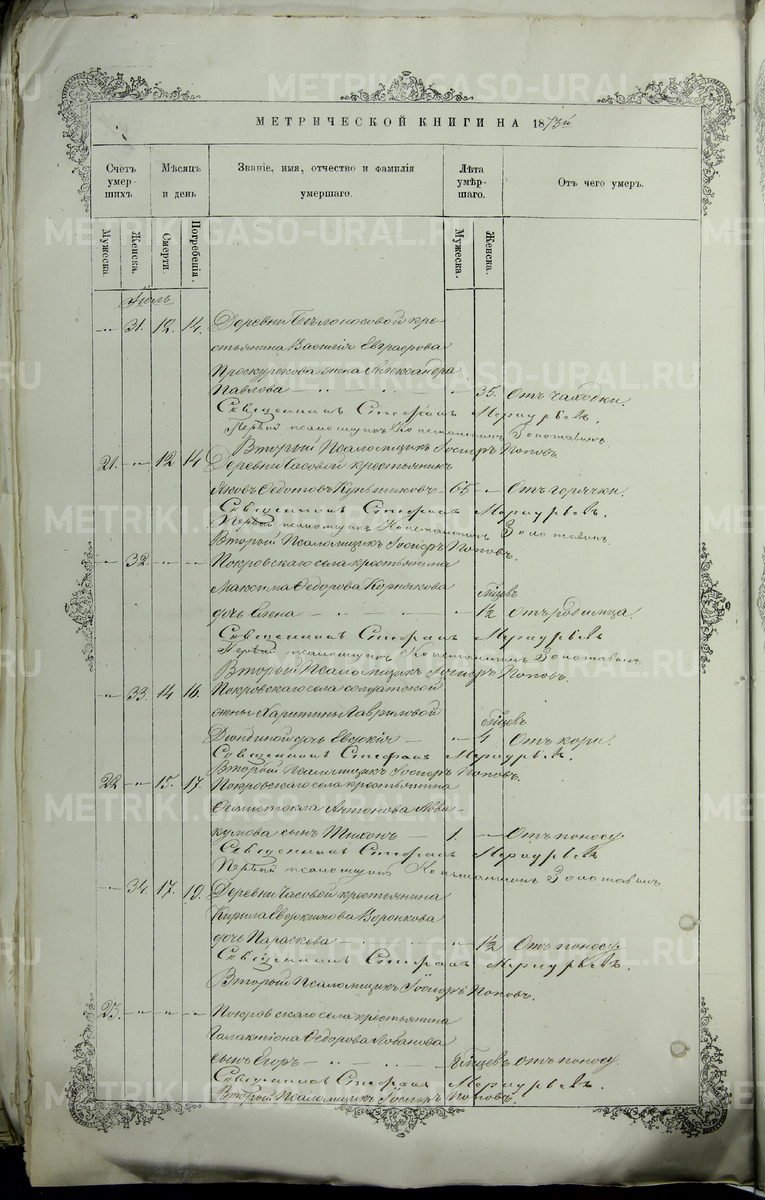 МЕТРИЧЕСКОЙ КНИГИ НА 1873й
Счетъ умер- шихъ.
Мѣсяцъ и день
Званіе, имя, отчество и фамилія умершаго.
Лѣта умер- шаго.
Отъ чего умеръ.
Мужеска.
Женска.
Смерти.
Погребенія.
Мужеска.
Женска.
Іюль
" 31. 12. 14. Деревни Бѣлоносовой кре-
стьянина Василія Евграфова
Проскурякова жена Александра
Павлова — 35. Отъ чахотки.
Священникъ Стефанъ Меркурьевъ.
Первый псаломщикъ Константинъ Золотавинъ
Второй Псаломщикъ Іосифъ Поповъ.
21. " 12 14 Деревни Часовой крестьянинъ
Яковъ Ѳедотовъ — 65 " Отъ горячки.
Священникъ Стефанъ Меркурьевъ.
Первый псаломщикъ Константинъ Золотавинъ
Второй Псаломщикъ Іосифъ Поповъ.
" 32. — — Покровскаго села крестьянина
Максима Ѳедорова
дочь Елена — " 1/2 Отъ родимца
Священникъ Стефанъ Меркурьевъ
Первый псаломщикъ Константинъ Золотавинъ
Второй Псаломщикъ Іосифъ Поповъ.
" 33. 14 16. Покровскаго села солдатской
жены Харитины Гавриловой
дочь Евдокія — " 4 Отъ кори.
Священникъ Стефанъ Меркурьевъ.
Второй Псаломщикъ Іосифъ Поповъ.
22 " 15. 17. Покровскаго села крестьянина
Ѳемистокла Антонова Абва-
кумова сынъ Тихонъ — 1. — Отъ поносу
Священникъ Стефанъ Меркурьевъ
Первый псаломщикъ Константинъ Золотавинъ
" 34. 17. 19. Деревни Часовой крестьянина
Кирила Евдокимова Воронкова
дочь Параскева — " 1 1/2 Отъ поносу
Священникъ Стефанъ Меркурьевъ.
Второй Псаломщикъ Іосифъ Поповъ.
23. " — — Покровскаго села крестьянина
Галактіона Ѳедорова Лобанова
сынъ Егоръ — отъ поносу
Священникъ Стефанъ Меркурьевъ.
Второй Псаломщикъ Іосифъ Поповъ.
METRIKI.GASO-URAL.RU